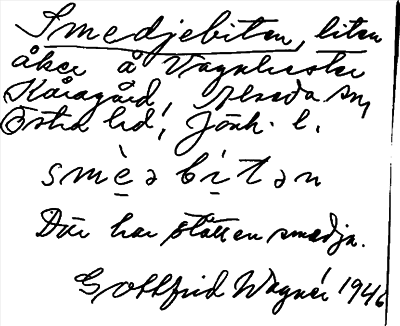 Smedjebiten, liten
åker å Vagnhester
Kåragård, Alseda sn,
Östra hd, Jönk. l.
smè̱ə bi̱tən
Där har stått en smedja.
Gottfrid Wagnér 1946